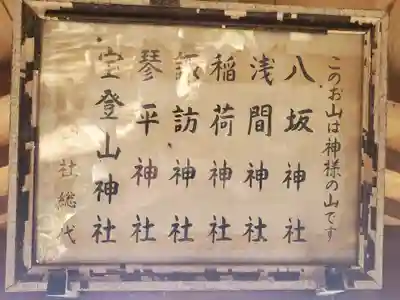 このお山は神様の山です
八坂神社
浅間神社
稲荷神社
諏訪神社
琴平神社
宝登山神社
社総代